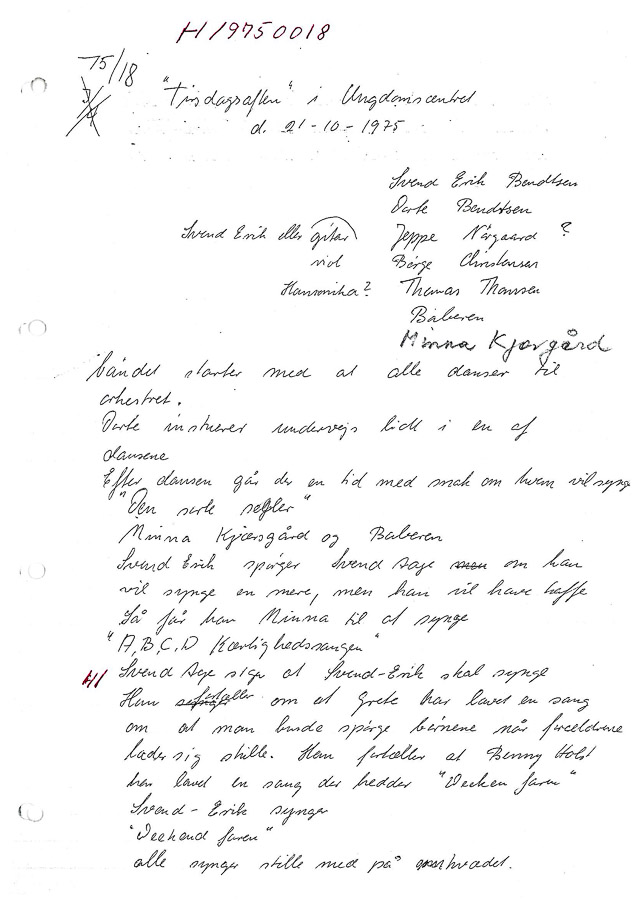 H19750018
75/18
"Tirsdagsaften" i Ungdomscentret
d. 21-10-1975
Svend Erik Bendtsen
Dorte Bendtsen
Svend Erik eller gitar Jeppe Nørgaard ?
viol Børge Christensen
Harmonika? Thomas Thomsen
Baberen
Minna Kjærgård
båndet starter med at alle danser til
orkestret.
Dorte instruerer undervejs lidt i en af
dansene
Efter dansen går der en tid med snak om hvem vil synge
"Den sorte sejler"
Minna Kjærsgård og Baberen
Svend Erik spørger Svend Aage om han
vil synge en mere, men han vil have kaffe
Så får han Minna til at synge
"A,B,C,D Kærlighedssangen"
H1 Svend Aage siger at Svend-Erik skal synge
Han fortæller om at Grete har lavet en sang
om at man burde spørge børnene når forældrene
lader sig skille. Han fortæller at Benny Holst
har lavet en sang der hedder "Weeken faren"
Svend-Erik synger
"Weekend faren"
alle synger stille med på omkvædet.